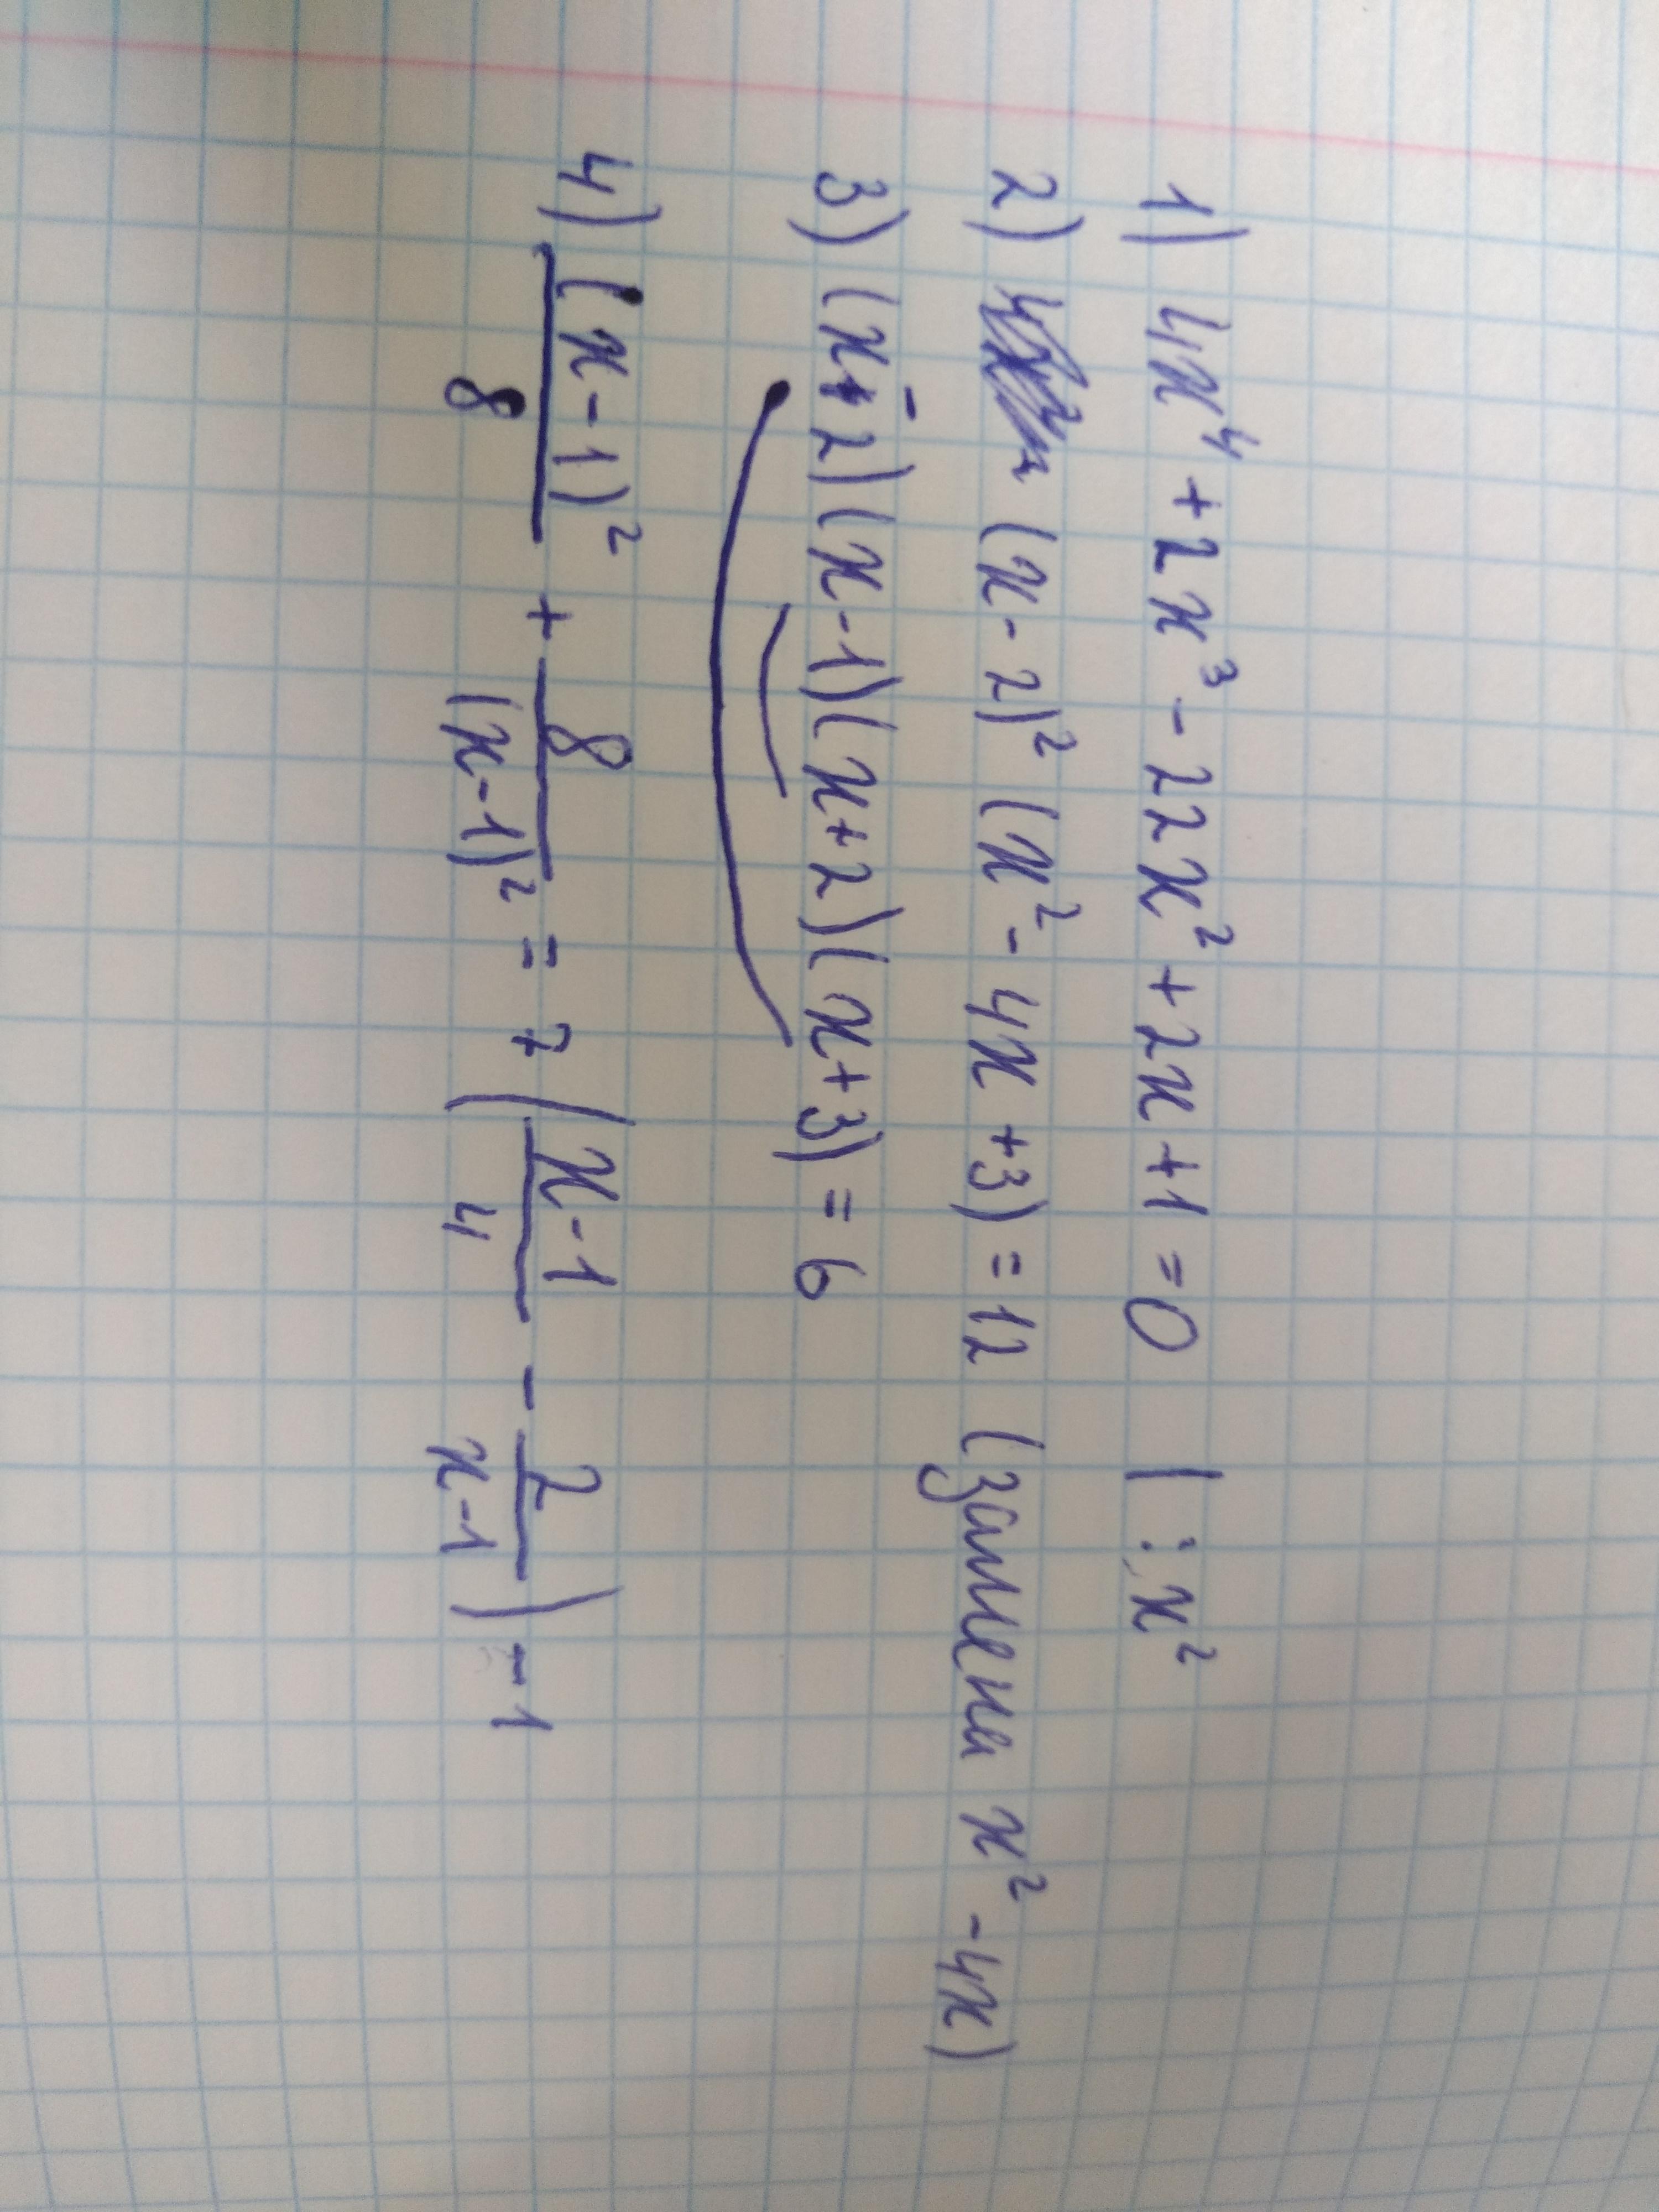 1) 4x⁴ + 2x³ - 22x² + 2x + 1 = 0 | : x²
2) (x - 2)² (x² - 4x + 3) = 12 (замена x² - 4x)
3) (x - 2)(x - 1)(x + 2)(x + 3) = 6
4) (x - 1)²/8 + 8/(x - 1)² = 7 (x - 1/4 - 2/x - 1) - 1